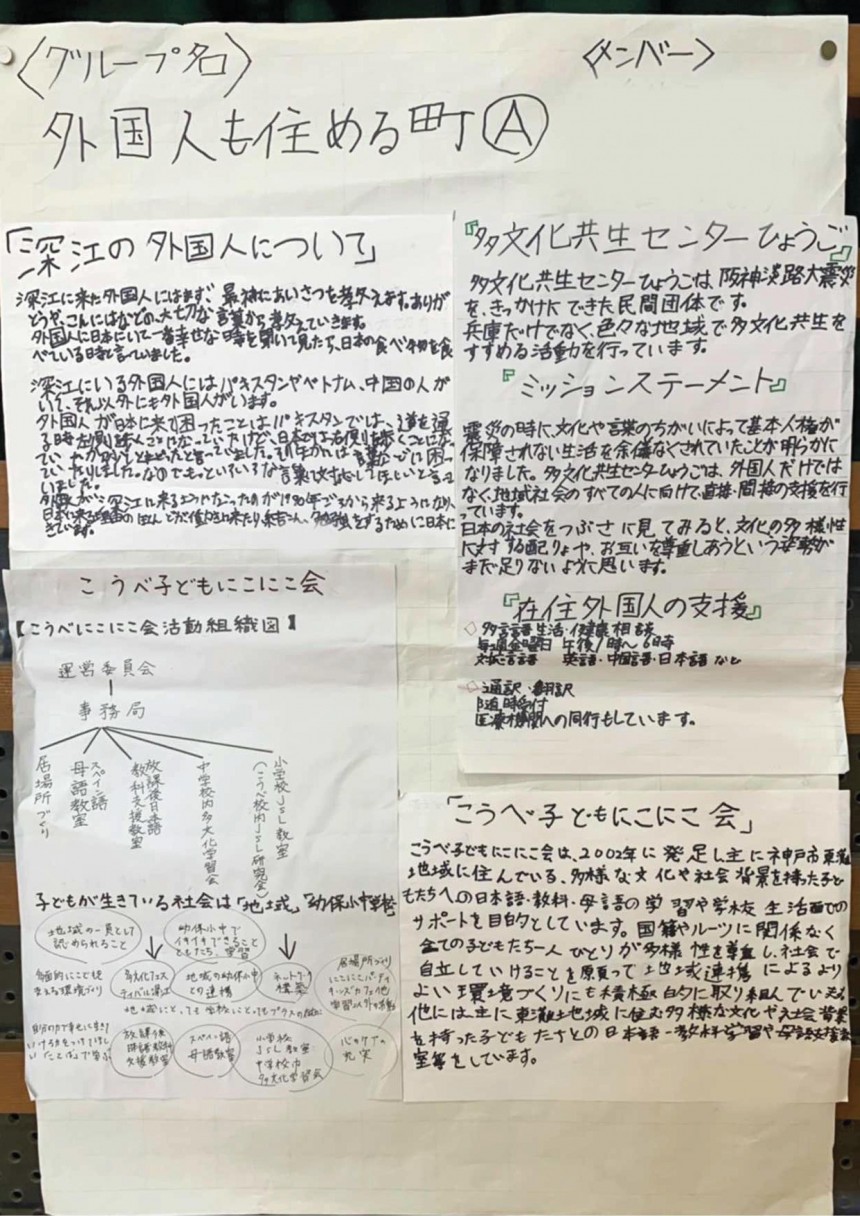 〈グループ名〉
〈メンバー〉
外国人も住める町Ⓐ
「深江の外国人について」
深江に来た外国人にはまず、最初にあいさつを教えます。ありが
とうや、こんにちはなどの、大切な言葉から教えていきます。
外国人に日本にいて一番幸せな時を聞いて見たら、日本の食べ物を食
べている時と言っていました。
深江にいる外国人にはパキスタンやベトナム、中国の人が
いて、それ以外にも外国人がいます。
外国人が日本に来て困ったことはパキスタンでは、道を通
る時左側
いました。
きています。
『多文化共生センターひょうご』
多文化共生センターひょうごは、阪神淡路大震災
を、きっかけにできた民間団体です。
兵庫だけでなく、色々な地域で多文化共生を
すすめる活動を行っています。
『ミッションステーメント』
震災の時に、文化や言葉のちがいによって基本人権が
保障されない生活を余儀なくされていたことが明らかに
なりました。多文化共生センターひょうごは、外国人だけでは
なく、地域社会のすべての人に向けて、直接・間接の支援を行
っています。
日本の社会をつぶさに見てみると、文化の多様性
に対する配りょや、お互いを尊重しあうという姿勢が
まだ足りないように思います。
『在住外国人の支援』
◇多言語生活・健康相談
毎週金曜日 午後1時〜6時
対応言語 英語・中国語・日本語など
◇通訳・翻訳
随時受付
医療機関への同行もしています。
こうべ子どもにこにこ会
【こうべにこにこ会活動組織図】
運営委員会
事務局
居場所づくり
スペイン語
母語教室
放課後日本語
教科支援教室
中学校内多文化学習会
小学校JSL教室
(こうべ校内JSL研究会)
子どもが生きている社会は「地域」「幼保小中学校」
地域の一員として
認められること
幼保小中で
イキイキできること
ともだち、学習
多文化フェス
ティバル深江
地域の幼保小中
との連携
ネットワーク
構築
居場所づくり
にこにこパーティ
キッズカフェ他
学習以外の活動
支える環境づくり
地域にとっても学校にとってもプラスの
放課後
支援教室
スペイン語
母語教室
小学校
JSL教室
中学校内
多文化学習会
心のケアの
充実
「こうべ子どもにこにこ会」
こうべ子どもにこにこ会は、2002年に発足し主に神戸市東灘
地域に住んでいる、多様な文化や社会背景を持った子ど
もたちへの日本語・教科・母語の学習や学校生活面での
サポートを目的としています。国籍やルーツに関係なく
全ての子どもたち一人ひとりが多様性を尊重し、社会で
自立していけることを願って地域連携によるより
よい環境づくりにも積極的に取り組んでいる
他には主に東灘地域に住む多様な文化や社会背景
を持った子どもたちとの日本語・教科学習や母語支援教
室等をしています。